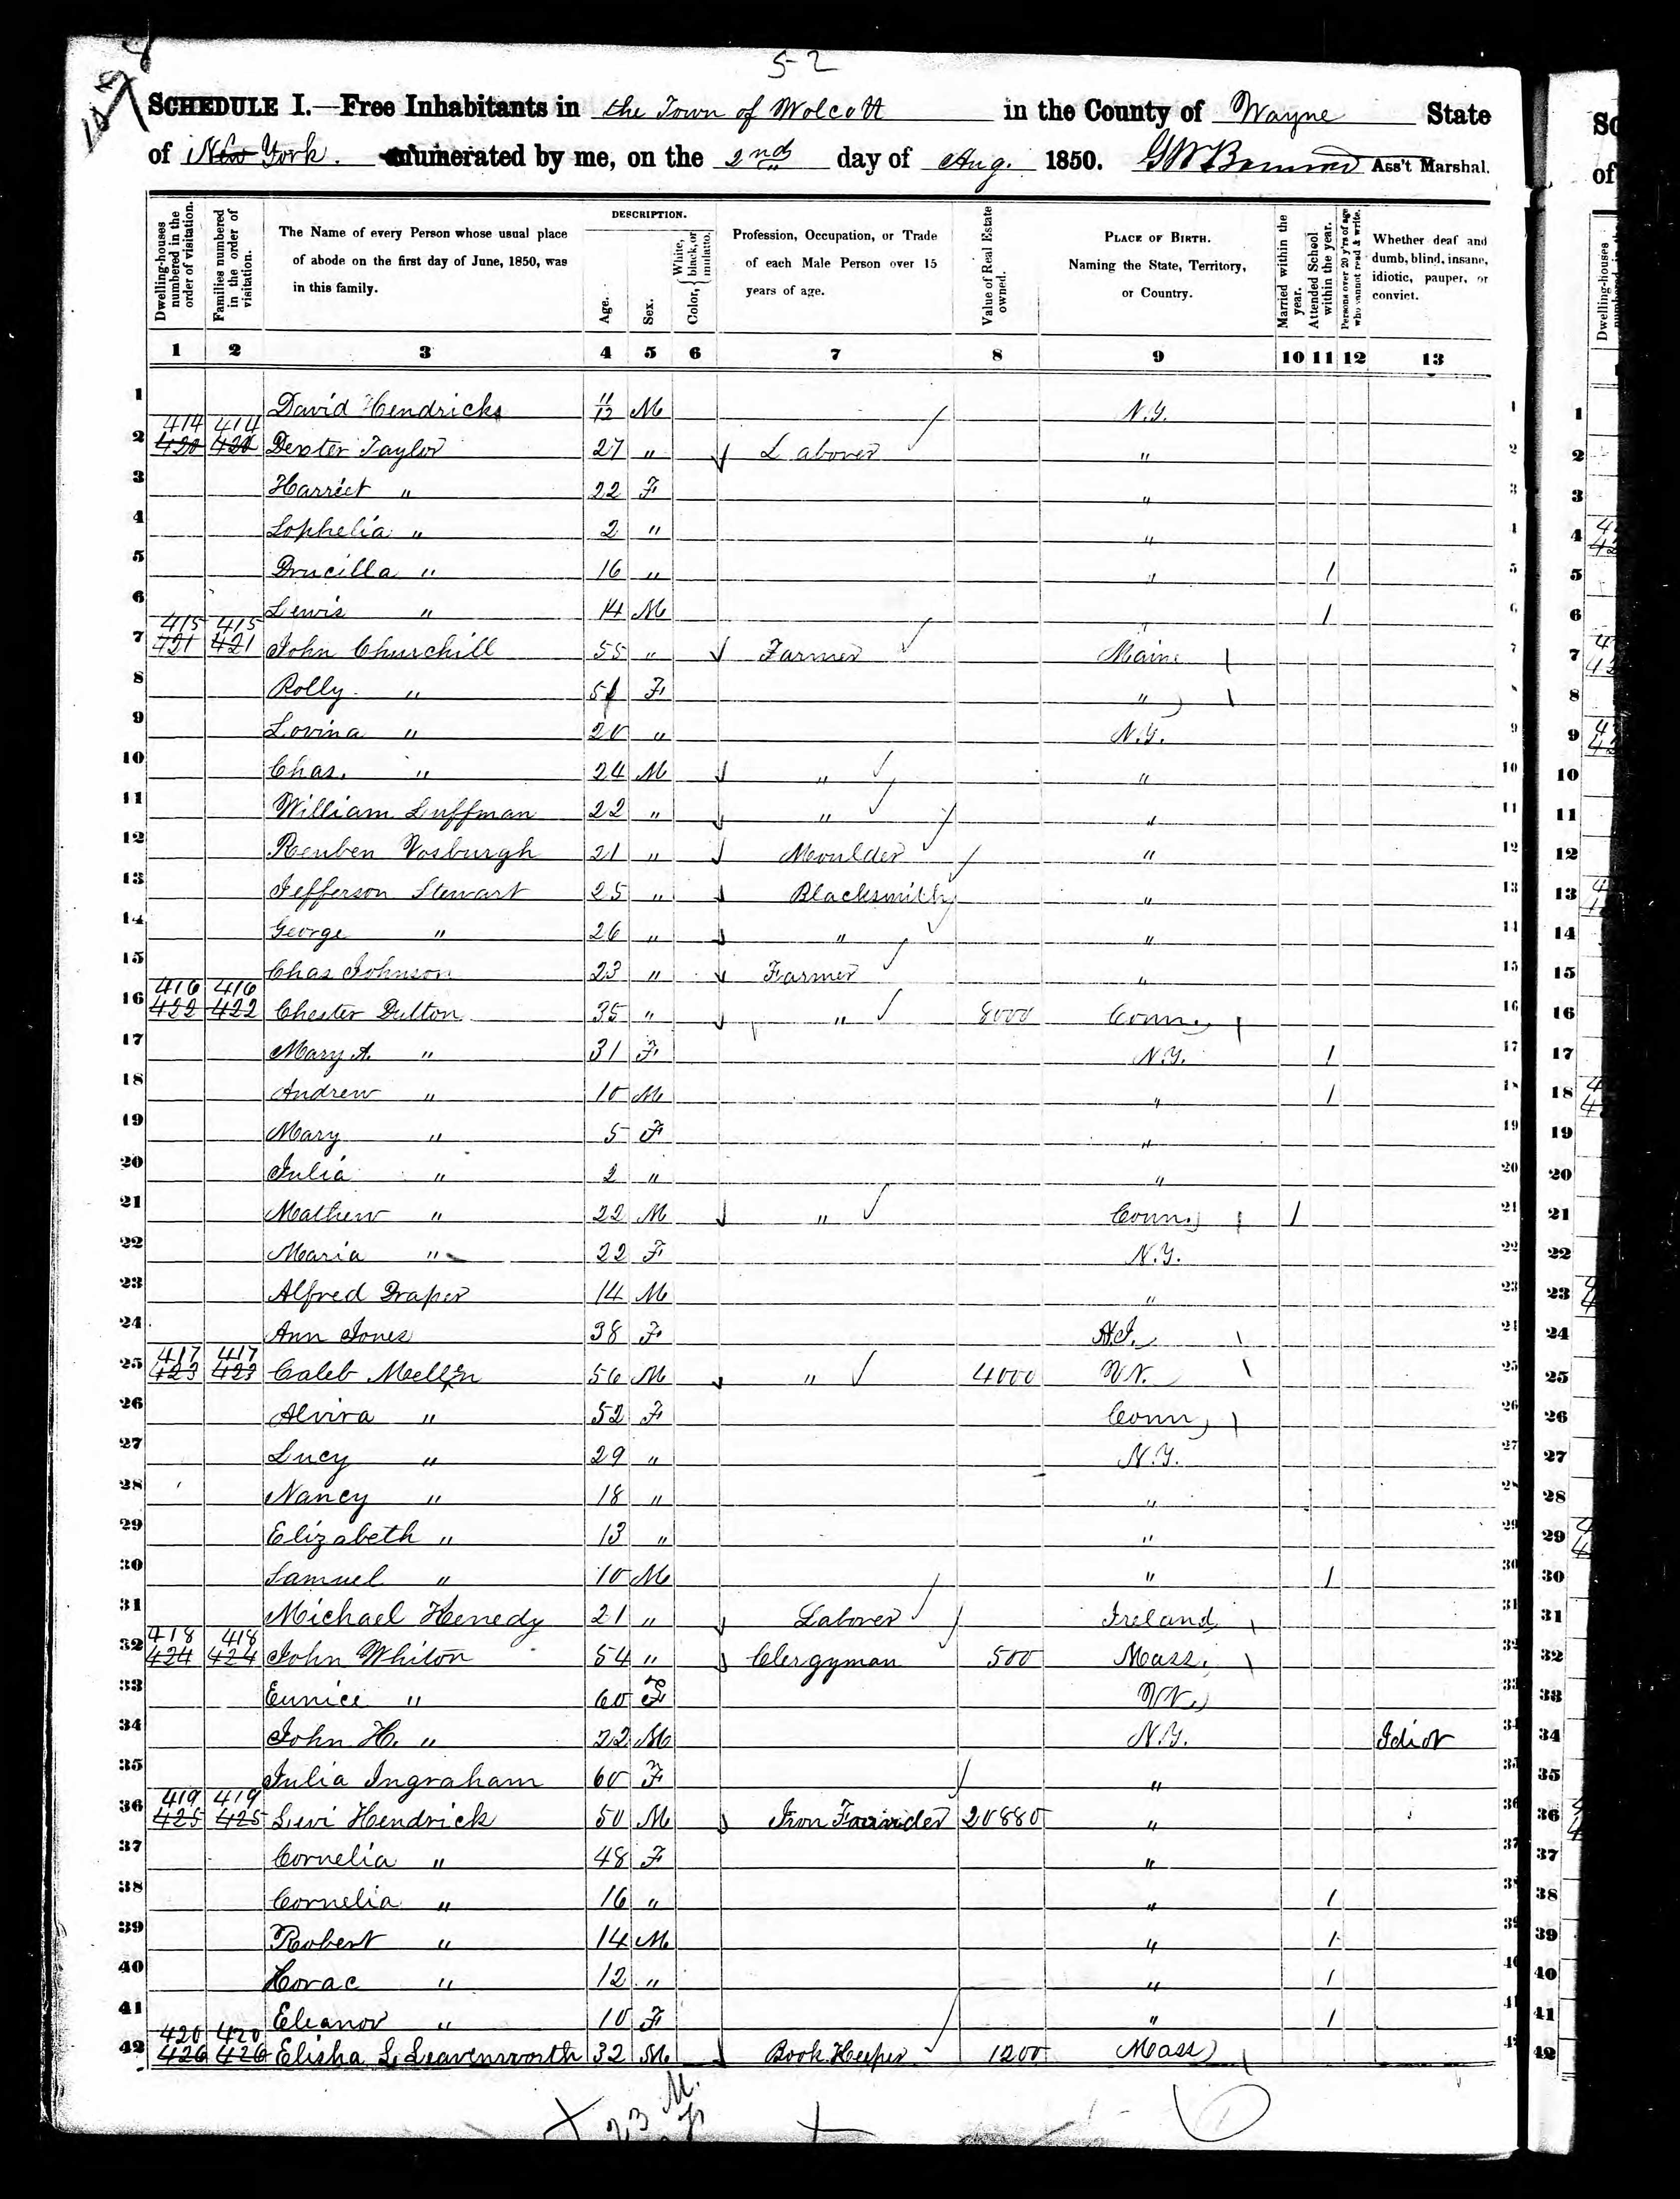 52
SCHEDULE I.—Free Inhabitants in the Town of Wolcott in the County of Wayne State
of New York. enumerated by me, on the 2nd day of Aug. 1850. Ass't Marshal.
Dwelling-houses numbered in the order of visitation. Families numbered in the order of visitation. The Name of every Person whose usual place of abode on the first day of June, 1850, was in this family. DESCRIPTION. Age. Sex. Color, { White, black, or mulatto. Profession, Occupation, or Trade of each Male Person over 15 years of age. Value of Real Estate owned. PLACE OF BIRTH. Naming the State, Territory, or Country. Married within the year. Attended School within the year. Persons over 20 y'rs of age who cannot read & write. Whether deaf and dumb, blind, insane, idiotic, pauper, or convict.
1 2 3 4 5 6 7 8 9 10 11 12 13
1 David Hendricks 11/12 M N.Y. 1
414 414
2 420 420 Dexter Taylor 27 " Laborer " 2
3 Harriet " 22 F " 3
4 Lophelia " 2 " " 4
5 Drucilla " 16 " " 1 5
6 Lewis " 14 M " 1 6
415 415
7 421 421 John Churchill 55 " Farmer Maine 7
8 Polly " 51 F " 8
9 Lovina " 20 " N.Y. 9
10 Chas. " 24 M " " 10
11 William Luffman 22 " " " 11
12 Reuben Vosburgh 21 " Moulder " 12
13 Jefferson Stewart 25 " Blacksmith " 13
14 George " 26 " " " 14
15 Chas Johnson 23 " Farmer " 15
416 416
16 422 422 Chester Dutton 35 " " 8000 Conn. 16
17 Mary A. " 31 F N.Y. 1 17
18 Andrew " 10 M " 1 18
19 Mary " 5 F " 19
20 Julia " 2 " " 20
21 Mathew " 22 M " Conn. 1 21
22 Maria " 22 F N.Y. 22
23 Alfred Draper 14 M " 23
24 Ann Jones 38 F 24
417 417
25 423 423 Caleb Mellen 56 M " 4000 25
26 Alvira " 52 F Conn 26
27 Lucy " 29 " N.Y. 27
28 Nancy " 18 " " 28
29 Elizabeth " 13 " " 29
30 Samuel " 10 M " 1 30
31 Michael Henedy 21 " Laborer Ireland 31
418 418
32 424 424 John Whiton 54 " Clergyman 500 Mass. 32
33 Eunice " 60 F 33
34 John H. " 22 M N.Y. Idiot 34
35 Julia Ingraham 60 F " 35
419 419
36 425 425 Levi Hendrick 50 M Iron Founder 20880 " 36
37 Cornelia " 48 F " 37
38 Cornelia " 16 " " 1 38
39 Robert " 14 M " 1 39
40 Horac " 12 " " 1 40
41 Eleanor " 10 F " 1 41
420 420
42 426 426 Elisha L Leavenworth 32 M Book Keeper 1200 Mass 42
23 M.